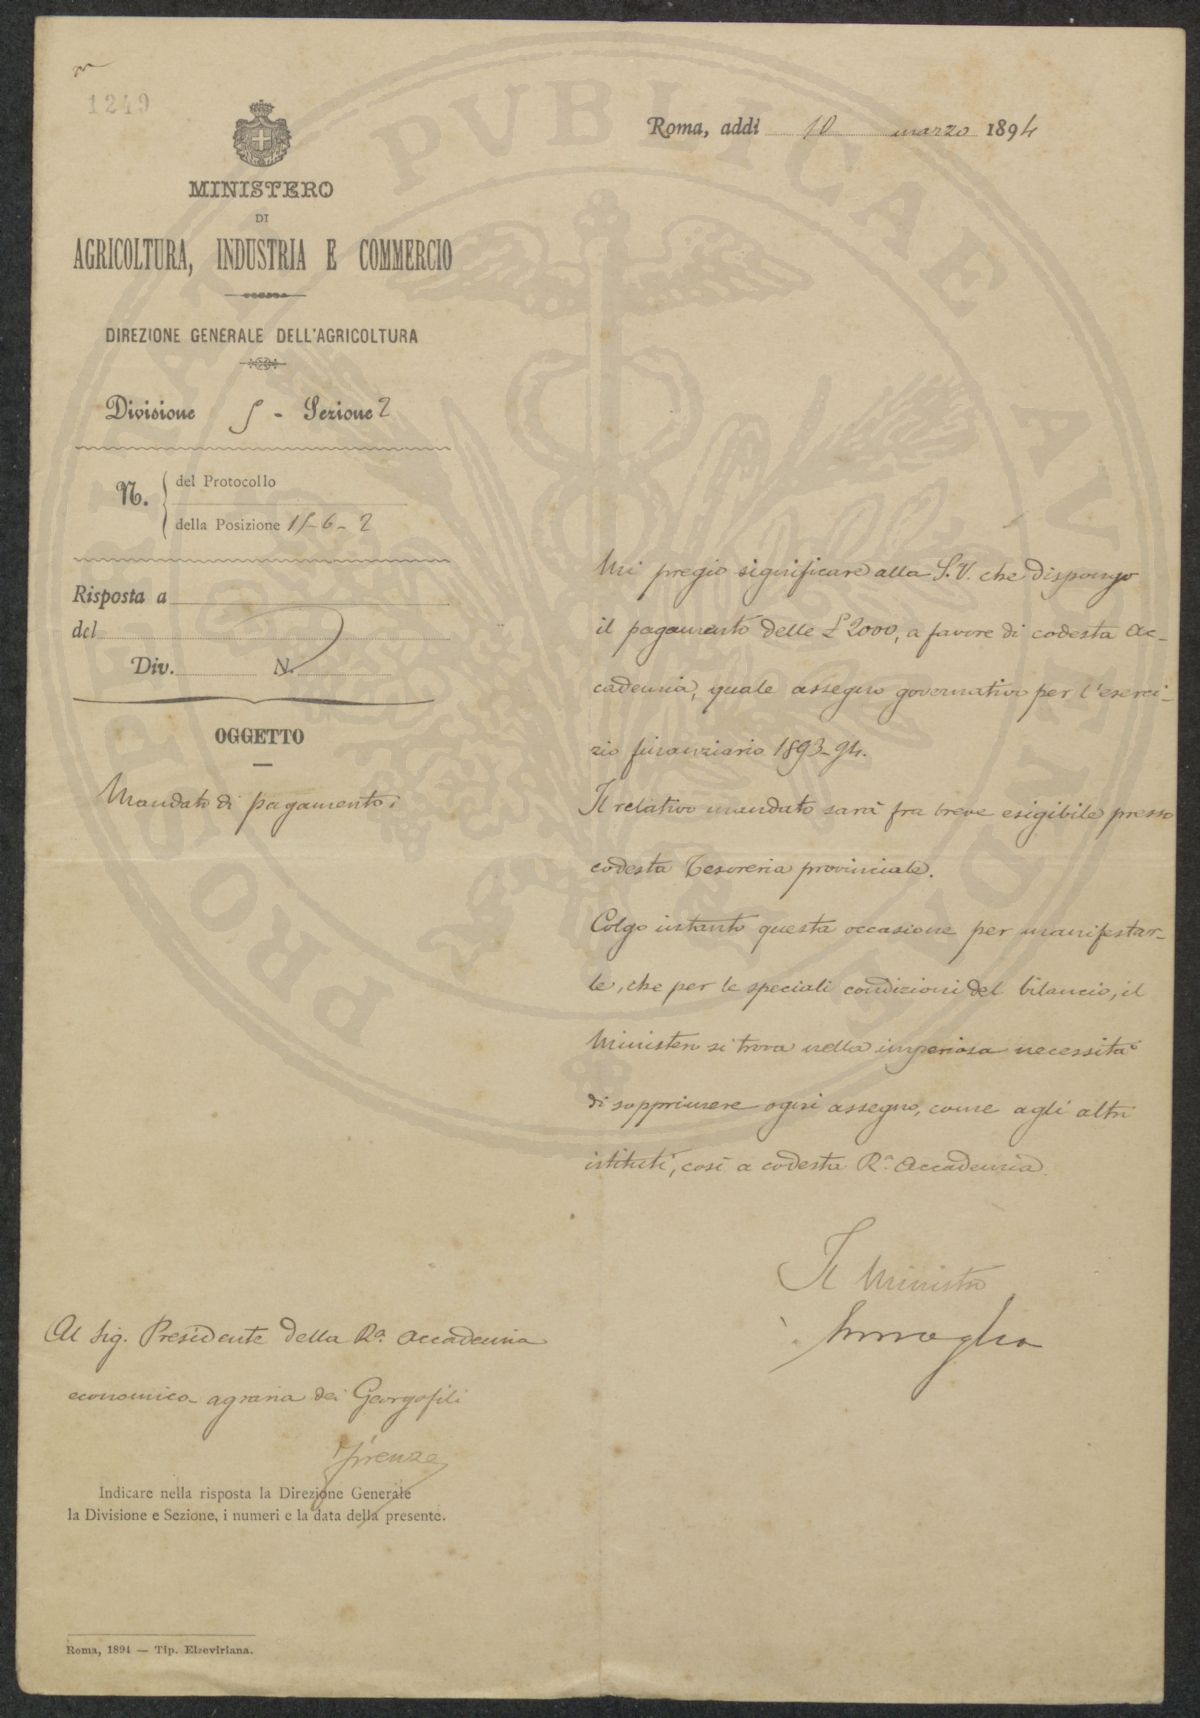 1249
MINISTERO
DI
AGRICOLTURA, INDUSTRIA E COMMERCIO
DIREZIONE GENERALE DELL'AGRICOLTURA
Divisione 5 - Sezione 2
N. del Protocollo
della Posizione 15-6-2
Risposta a
del
Div. N.
OGGETTO
Mandato di pagamento.
Roma, addì 10 marzo 1894
Mi pregio significare alla S.V. che dispongo
il pagamento delle £ 2000, a favore di codesta Ac-
cademia, quale assegno governativo per l'eserci-
zio finanziario 1893-94.
Il relativo mandato sarà fra breve esigibile presso
codesta Tesoreria provinciale.
Colgo intanto questa occasione per manifestar-
le, che per le speciali condizioni del bilancio, il
Ministero si trova nella imperiosa necessità
di sopprimere ogni assegno, come agli altri
istituti, così a codesta R.a Accademia.
Il Ministro
Al Sig. Presidente della R.a Accademia
economico-agraria dei Georgofili
Firenze
Indicare nella risposta la Direzione Generale
la Divisione e Sezione, i numeri e la data della presente.
Roma, 1894 — Tip. Elzeviriana.
PROSPERITATI PVBLICAE AVGENDAE